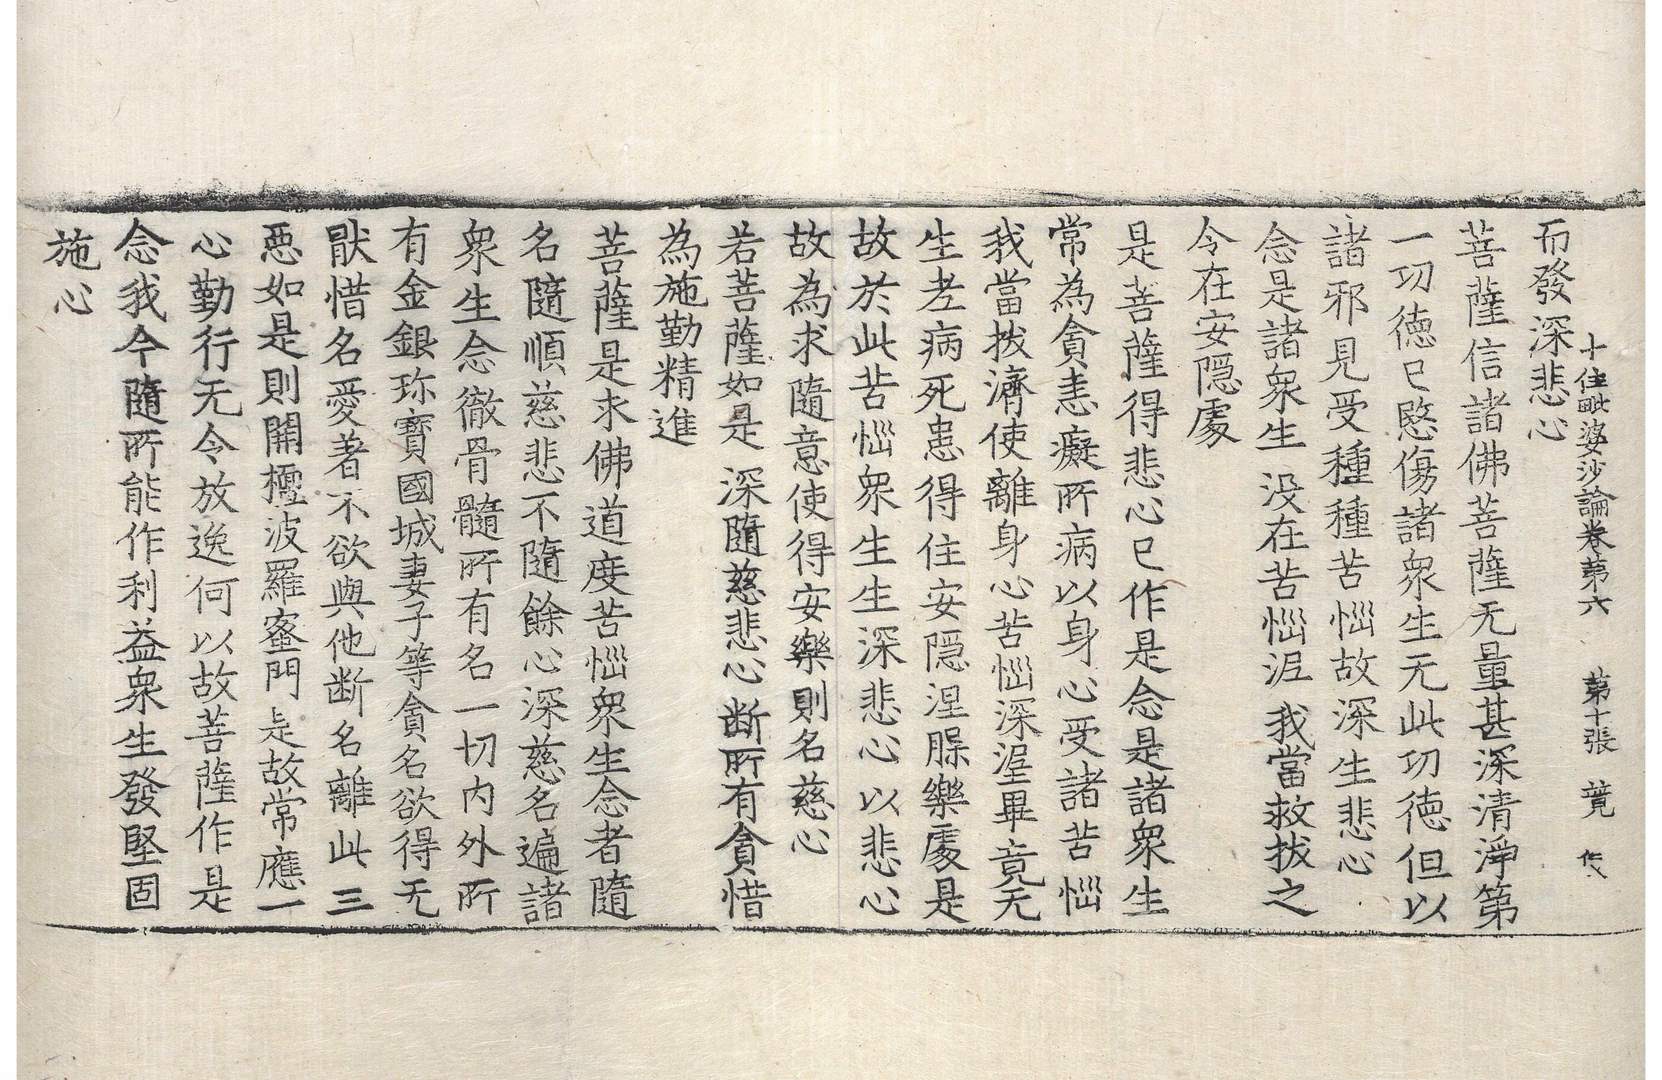 十住毗婆沙論卷第六 第十張 競
而發深悲心
菩薩信諸佛菩薩无量甚深清淨第
一功德已愍傷諸衆生无此功德但以
諸邪見受種種苦惱故深生悲心
念是諸衆生 没在苦惱泥 我當救拔之
令在安隱處
是菩薩得悲心已作是念是諸衆生
常為貪恚癡所病以身心受諸苦惱
我當拔濟使離身心苦惱深渥畢竟无
生老病死患得住安隱涅槃樂處是
故於此苦惱衆生生深悲心以悲心
故為求隨意使得安樂則名慈心
若菩薩如是 深隨慈悲心 斷所有貪惜
為施勤精進
菩薩是求佛道度苦惱衆生念者隨
名隨順慈悲不隨餘心深慈名遍諸
衆生念徹骨髓所有名一切内外所
有金銀珎寶國城妻子等貪名欲得无
猒惜名愛著不欲與他断名離此三
惡如是則開檀波羅蜜門是故常應一
心勤行无令放逸何以故菩薩作是
念我今隨所能作利益衆生發堅固
施心